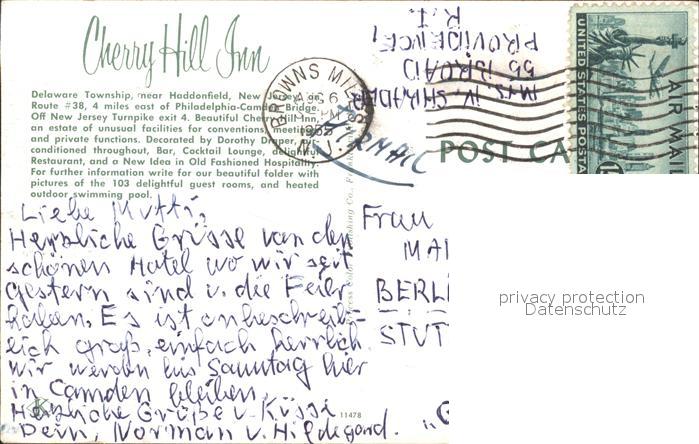 Cherry Hill Inn
Delaware Township, near Haddonfield, New Jersey on
Route #38, 4 miles east of Philadelphia-Camden Bridge.
Off New Jersey Turnpike exit 4. Beautiful Cherry Hill Inn,
an estate of unusual facilities for conventions, meetings
and private functions. Decorated by Dorothy Draper, air-
conditioned throughout, Bar, Cocktail Lounge, delightful
Restaurant, and a New Idea in Old Fashioned Hospitality.
For further information write for our beautiful folder with
pictures of the 103 delightful guest rooms, and heated
outdoor swimming pool.
BROWNS MILLS
6
PM
1955
N. J.
MRS. W. SHRADER
55 BROAD
PROVIDENCE,
R. I.
UNITED STATES POSTA
AIR MAIL
AIRMAIL
POST CA
Liebe Mutti,
Herzliche Grüsse von den
schönen Hotel wo wir seit
gestern sind u. die Feier
haben. Es ist unbeschreib-
lich groß, einfach herrlich.
Wir werden bis Sonntag hier
in Camden bleiben.
Herzliche Grüße u. Küsse
Dein, Norman u. Hildegard.
Frau
MA
BERLI
STUT
11478
privacy protection
Datenschutz